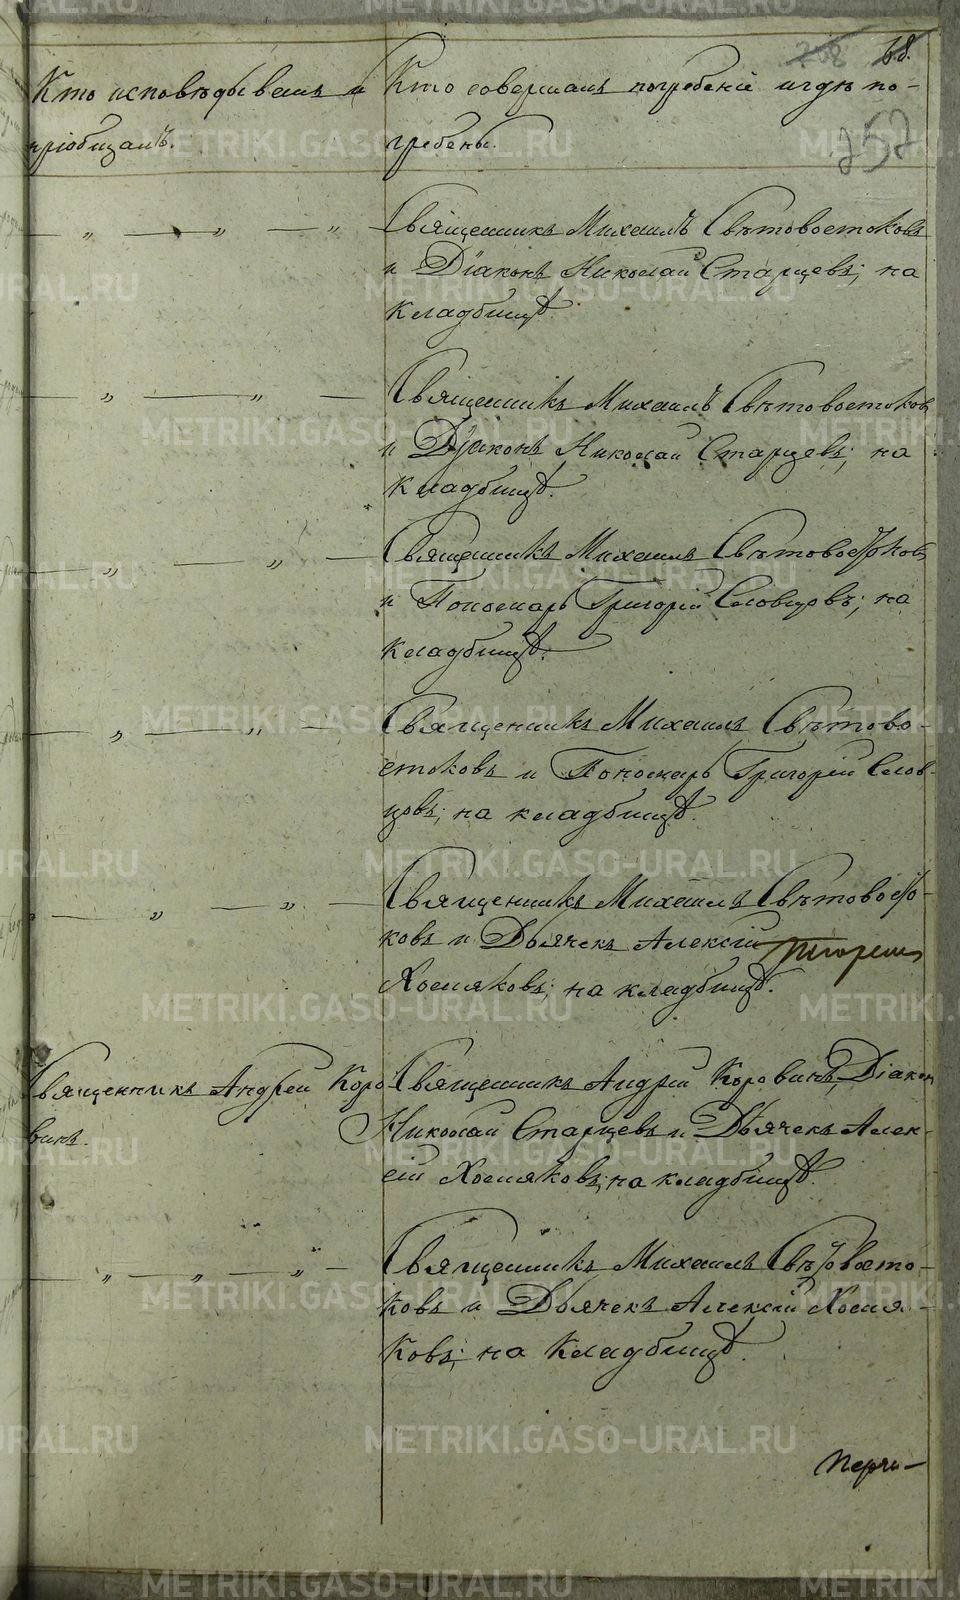 68.
257
Кто исповѣдывалъ и
пріобщалъ.
Кто совершалъ погребеніе и гдѣ по-
гребены.
— „ — „ — „ —
Священникъ Михаилъ Свѣтовостоковъ
и Діаконъ Николай Старцевъ; на
кладбищѣ.
— „ — „ —
Священникъ Михаилъ Свѣтовостоковъ
и Діаконъ Николай Старцевъ; на
кладбищѣ.
— „ — „ —
Священникъ Михаилъ Свѣтовостоковъ
и Пономарь Григорій Словцовъ; на
кладбищѣ.
— „ — „ —
Священникъ Михаилъ Свѣтово-
стоковъ и Пономарь Григорій Слов-
цовъ; на кладбищѣ.
— „ — „ —
Священникъ Михаилъ Свѣтовосто-
ковъ и Дьячекъ Алексій
Хомяковъ; на кладбищѣ.
Священникъ Андрей Коро
винъ.
Священникъ Андрей Коровинъ, Діаконъ
Николай Старцевъ и Дьячекъ Алек-
сій Хомяковъ; на кладбищѣ.
— „ — „ — „ —
Священникъ Михаилъ Свѣтовосто-
ковъ и Дьячекъ Алексій Хомя-
ковъ; на кладбищѣ.
METRIKI.GASO-URAL.RU